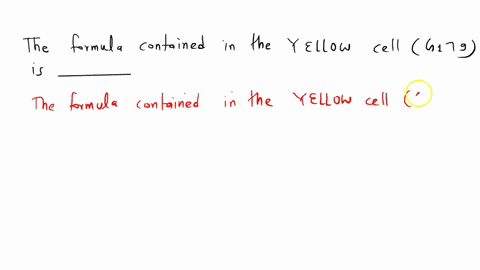 The formula contained in the YELLOW cell (G179)
is ________
The formula contained in the YELLOW cell (